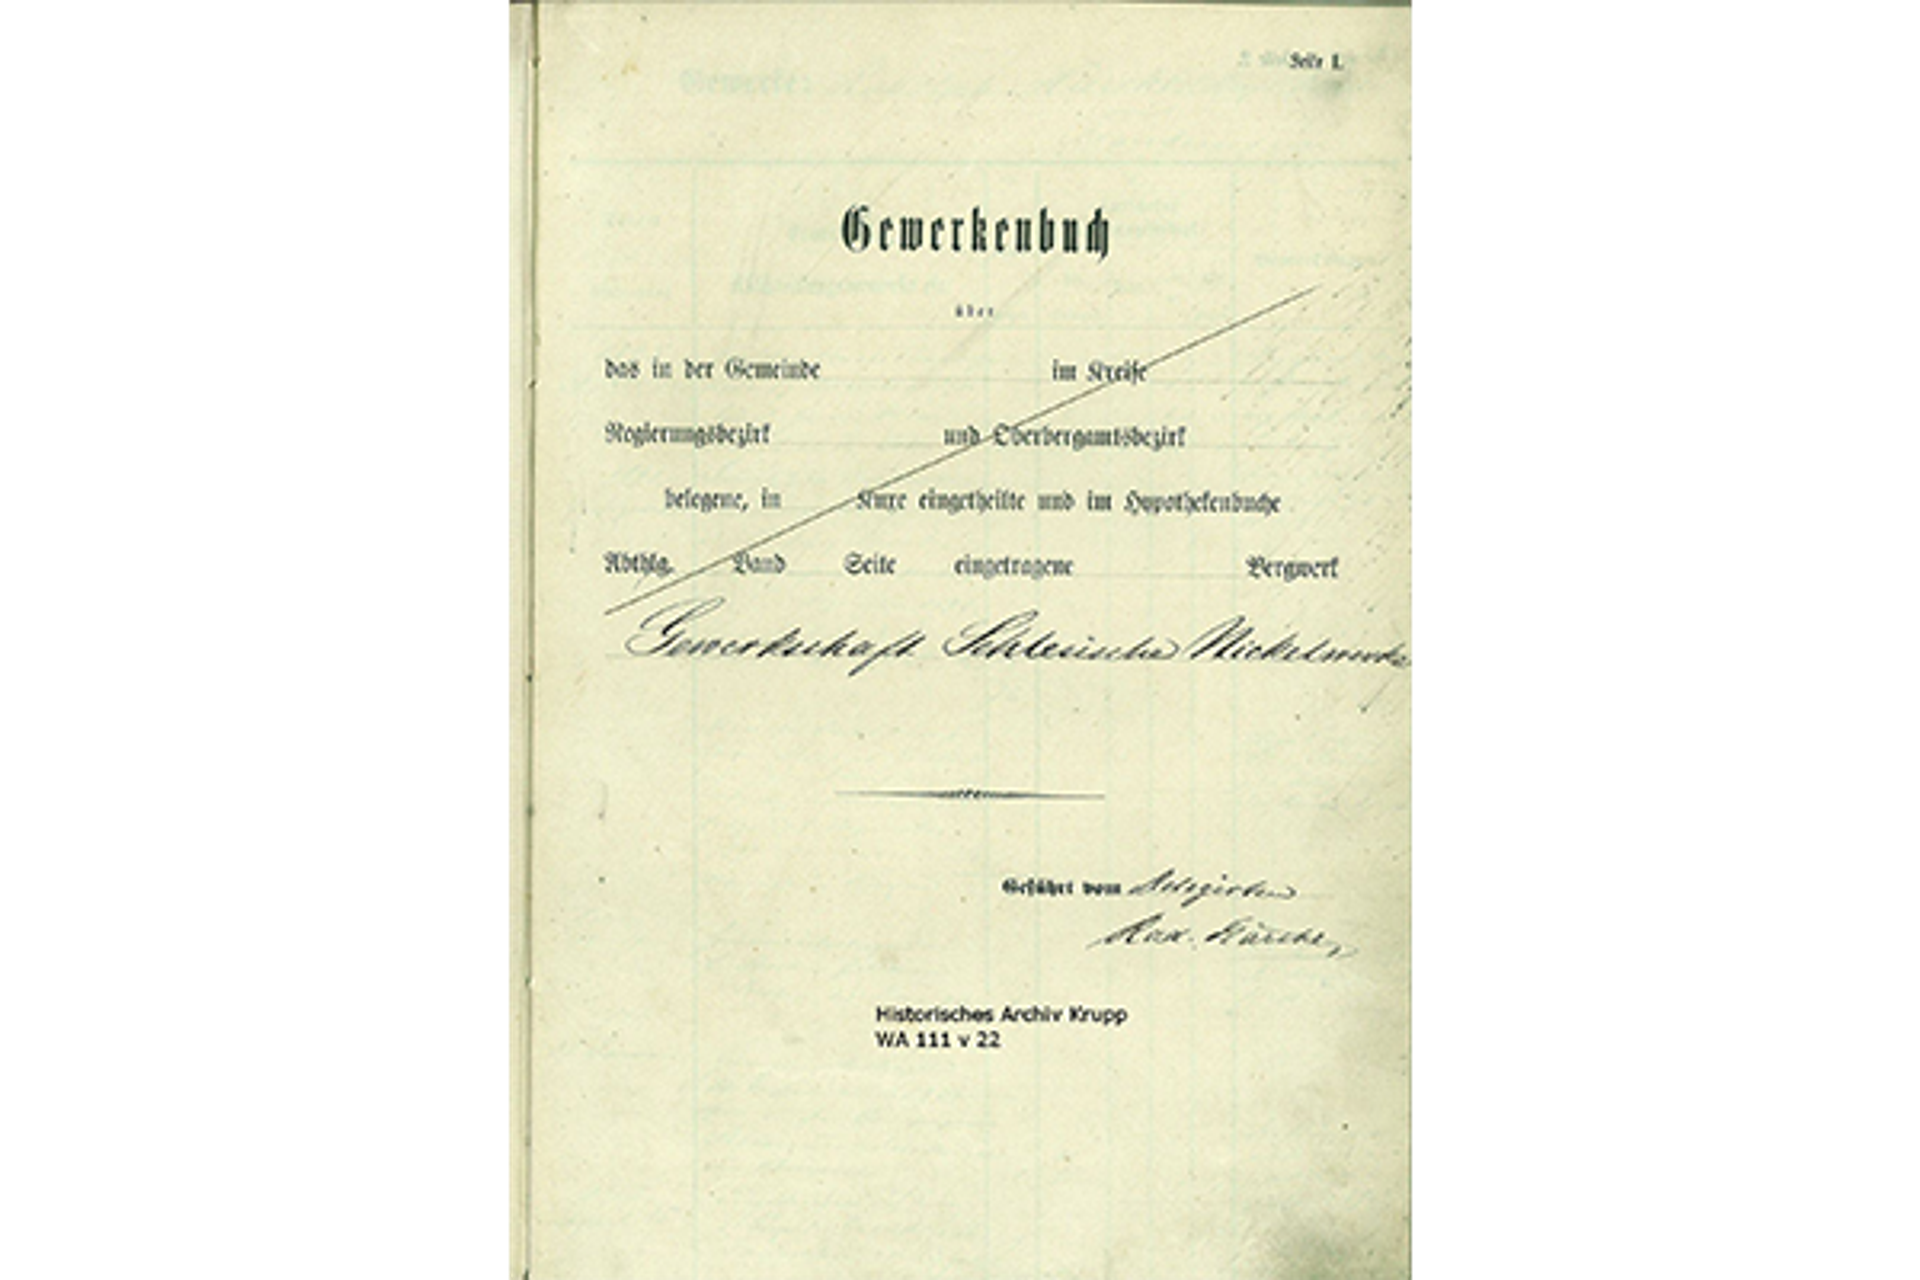 Seite 1.
Gewerkenbuch
über
das in der Gemeinde im Kreise
Regierungsbezirk und Oberbergamtsbezirk
belegene, in Kuxe eingetheilte und im Hypothekenbuche
Abthlg. Band Seite eingetragene Bergwerk
Gewerkschaft Schlesische Nickelwerke
Geführt vom Delegirten
Historisches Archiv Krupp
WA 111 v 22